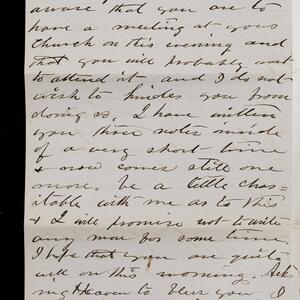 aware that you are to
have a meeting at your
Church on this evening and
that you will probably want
to attend it and I do not
wish to hinder you from
doing so, I have written
you three notes inside
of a very short time
& now comes still one
more, be a little char-
itable with me as to this
& I will promise not to write
any more for some time.
I hope that you are quite
well on this morning. Ask-
ing Heaven to bless you I